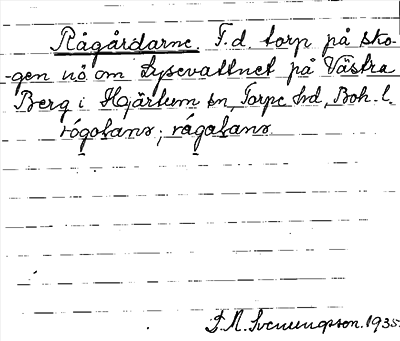 Rågårdarne. F.d torp på sko-
-gen nö om Lysevattnet på Västra
Berg i Hjärtum sn, Torpe hd, Boh. l.
rógoḷanɘ; rágaḷanɘ
F. M. Svenungsson. 1935.